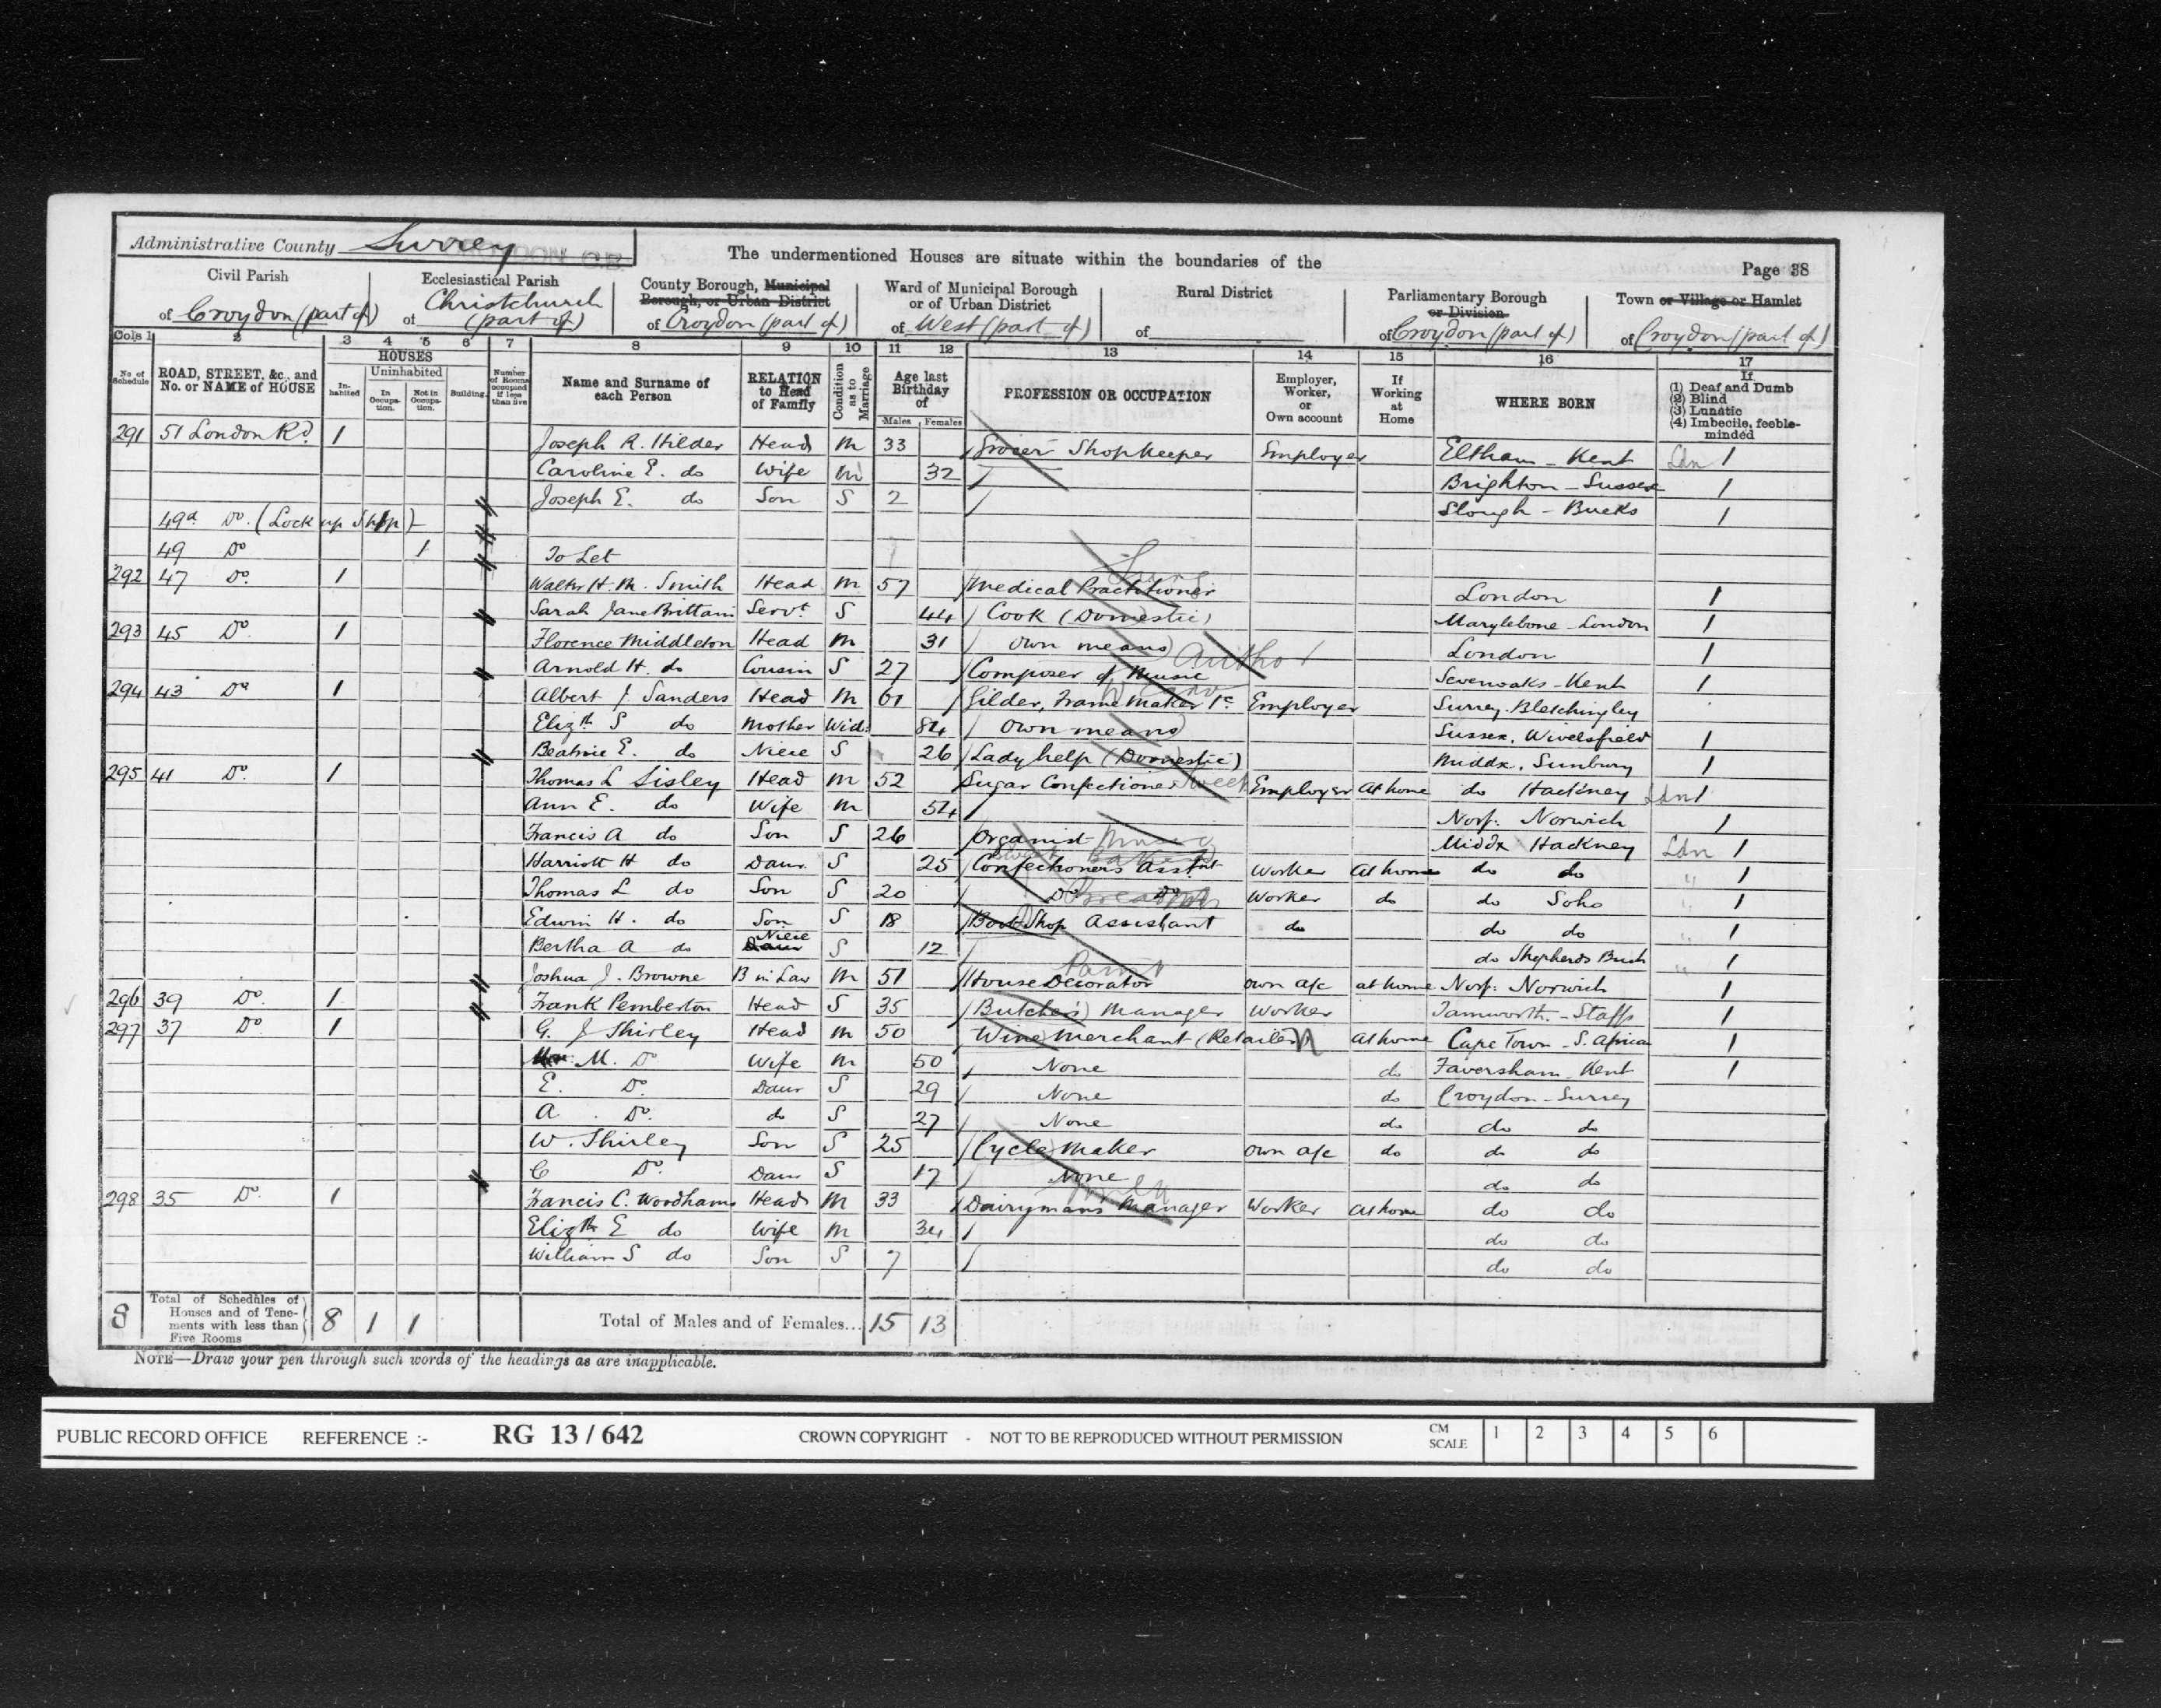 Administrative County Surrey
The undermentioned Houses are situate within the boundaries of the
Page 38
Civil Parish of Croydon (part of)
Ecclesiastical Parish of Christchurch (part of)
County Borough, Municipal Borough, or Urban District of Croydon (part of)
Ward of Municipal Borough or of Urban District of West (part of)
Rural District of
Parliamentary Borough or Division of Croydon (part of)
Town or Village or Hamlet of Croydon (part of)
Cols 1 2 3 4 5 6 7 8 9 10 11 12 13 14 15 16 17
No. of Schedule
ROAD, STREET, &c., and No. or NAME of HOUSE
HOUSES
Inhabited
Uninhabited
In Occupation.
Not in Occupation.
Building.
Number of Rooms occupied if less than five
Name and Surname of each Person
RELATION to Head of Family
Condition as to Marriage
Age last Birthday of
Males Females
PROFESSION OR OCCUPATION
Employer, Worker, or Own account
If Working at Home
WHERE BORN
If (1) Deaf and Dumb (2) Blind (3) Lunatic (4) Imbecile, feeble-minded
291 51 London Rd. 1 Joseph R. Hilder Head M 33 Grocer Shopkeeper Employer Eltham - Kent Ldn 1
Caroline E. do Wife M 32 Brighton - Sussex 1
Joseph E. do Son S 2 Slough - Bucks 1
49a Do. (Lock up Shop)
49 Do 1 To Let
292 47 Do. 1 Walter H. M. Smith Head M 57 Medical Practitioner London 1
Sarah Jane Brittain Servt S 44 Cook (Domestic) Marylebone - London 1
293 45 Do. 1 Florence Middleton Head M 31 Own means London 1
Arnold H. do Cousin S 27 Composer of Music Author Sevenoaks - Kent 1
294 43 Do 1 Albert J Sanders Head M 61 Gilder, Frame Maker &c Employer Surrey. Bletchingley
Elizth S do Mother Wid. 84 Own means Sussex. Wivelsfield 1
Beatrice E. do Niece S 26 Lady help (Domestic) Middx. Sunbury 1
295 41 Do. 1 Thomas L Sisley Head M 52 Sugar Confectioner Sweet Employer At home do Hackney Ldn 1
Ann E. do Wife M 54 Norf: Norwich 1
Francis A do Son S 26 Organist Music Middx Hackney Ldn 1
Harriott H do Daur. S 25 Confectioners Asstnt Worker At home do do 1
Thomas L do Son S 20 Do Do Worker do do Soho 1
Edwin H. do Son S 18 Boot Shop Assistant do do do 1
Bertha A do Daur Niece S 12 do Shepherds Bush 1
Joshua J. Browne B in Law M 51 House Decorator Paint own a/c at home Norf: Norwich 1
296 39 Do. 1 Frank Pemberton Head S 35 (Butchers) Manager Worker Tamworth. - Staffs 1
297 37 Do 1 G. J Shirley Head M 50 Wine Merchant (Retailer) At home Cape Town - S. Africa 1
M. Do Wife M 50 None do Faversham - Kent 1
E. Do. Daur S 29 None do Croydon - Surrey
A. Do. do S 27 None do do do
W. Shirley Son S 25 Cycle Maker own a/c do do do
C Do. Daur S 17 None do do
298 35 Do. 1 Francis C. Woodhams Head M 33 Dairymans Manager Milk Worker At home do do
Elizth E do Wife M 34 do do
William S do Son S 7 do do
8 Total of Schedules of Houses and of Tenements with less than Five Rooms 8 1 1 Total of Males and of Females... 15 13
NOTE—Draw your pen through such words of the headings as are inapplicable.
PUBLIC RECORD OFFICE REFERENCE :- RG 13 / 642 CROWN COPYRIGHT - NOT TO BE REPRODUCED WITHOUT PERMISSION CM SCALE 1 2 3 4 5 6